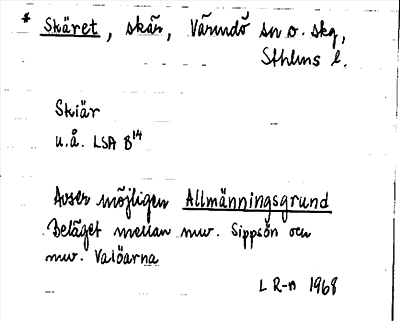 * Skäret, skär, Värmdö sn o. skg,
Sthlms l.
Skiär
u.å. LSA B14
Avser möjligen Allmänningsgrund
Beläget mellan nuv. Sippsön och
nuv. Valöarna
L R-n 1968